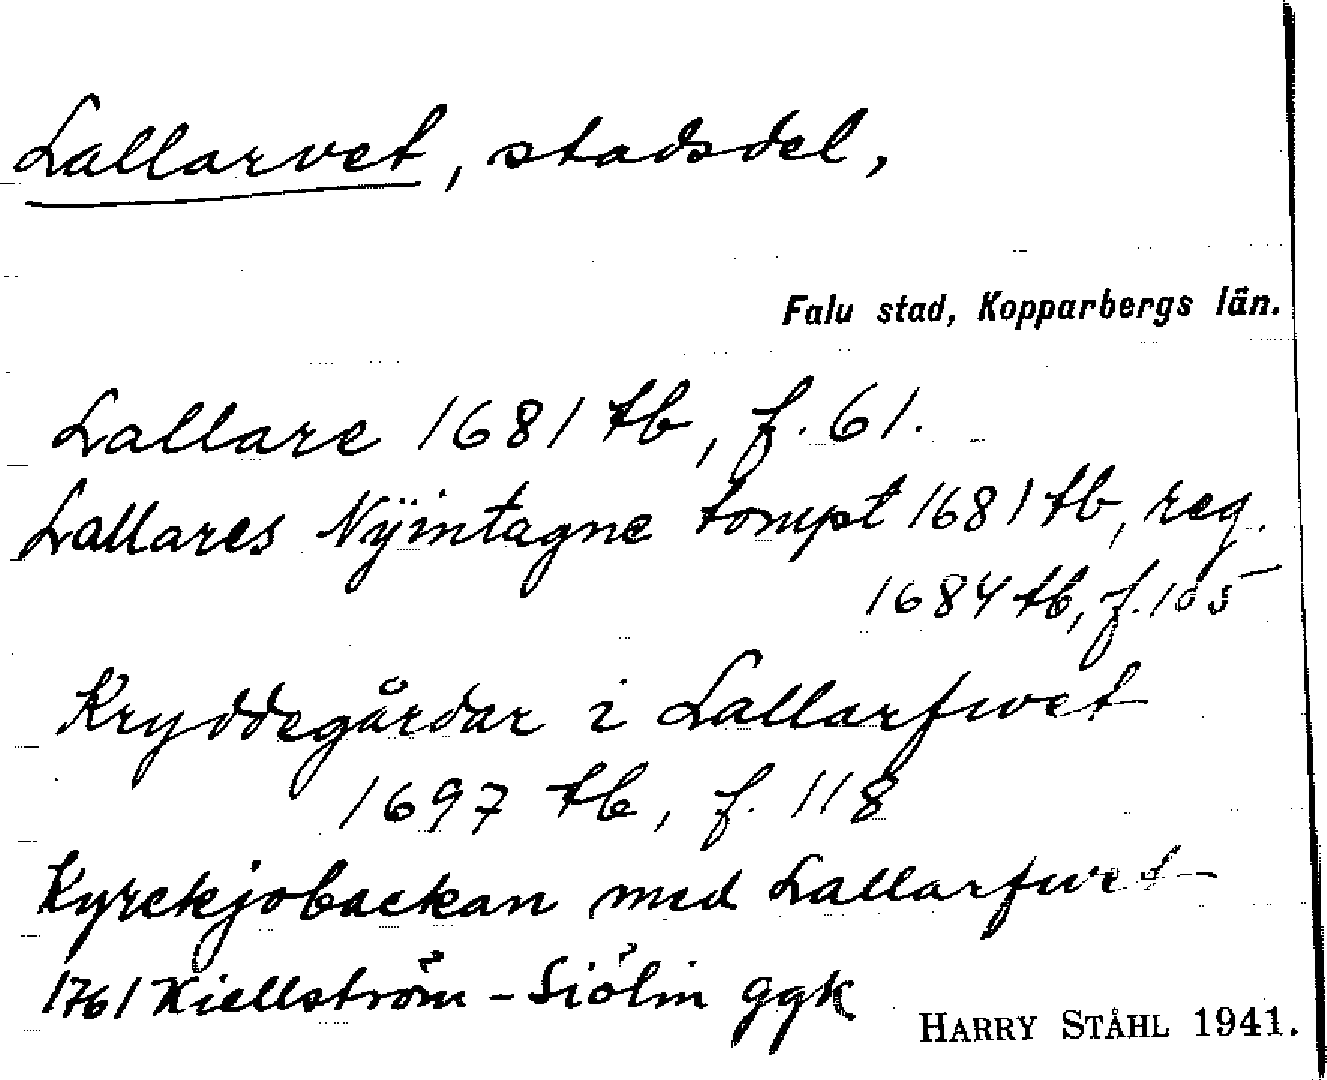 Lallarvet, stadsdel,
Falu stad, Kopparbergs län.
Lallare 1681 tb, f. 61.
Lallares Nÿintagne tompt 1681 tb, reg.
1684 tb, f. 105
Kryddegårdar i Lallarfwet
1697 tb, f. 118
Kyrekjobackan med Lallarfwet
1761 Kiellström - Siölin ggk
HARRY STÅHL 1941.